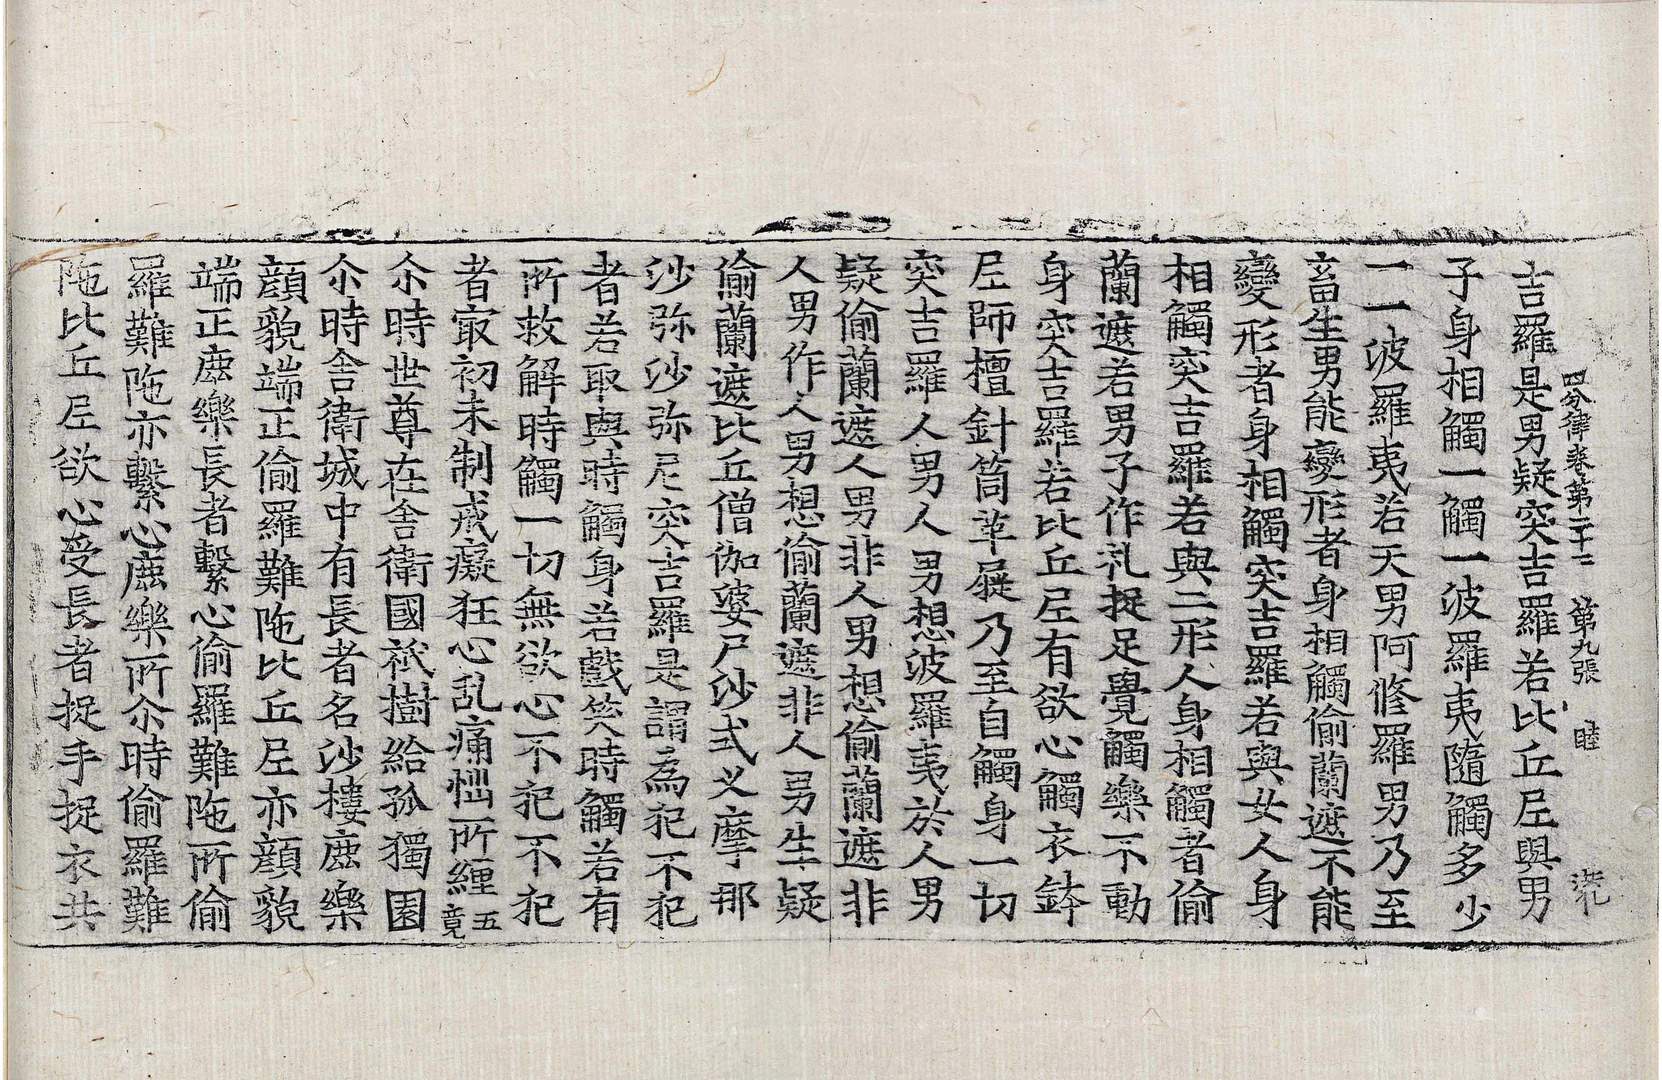 四分律卷第二十二 第九張 睦
吉羅是男疑突吉羅若比丘尼與男
子身相觸一觸一波羅夷隨觸多少
一一波羅夷若天男阿修羅男乃至
畜生男能變形者身相觸偷蘭遮不能
變形者身相觸突吉羅若與女人身
相觸突吉羅若與二形人身相觸者偷
蘭遮若男子作礼捉足覺觸樂不動
身突吉羅若比丘尼有欲心觸衣鉢
尼師檀針筒革屣乃至自觸身一切
突吉羅人男人男想波羅夷於人男
疑偷蘭遮人男非人男想偷蘭遮非
人男作人男想偷蘭遮非人男生疑
偷蘭遮比丘僧伽婆尸沙式叉摩那
沙弥沙弥尼突吉羅是謂為犯不犯
者若取與時觸身若戲笑時觸若有
所救解時觸一切無欲心不犯不犯
者㝡初未制戒癡狂心乱痛惱所纏五竟
尒時世尊在舍衛國祇樹給孤獨園
尒時舍衛城中有長者名沙樓鹿樂
顏貌端正偷羅難陁比丘尼亦顏貌
端正鹿樂長者繫心偷羅難陁所偷
羅難陁亦繫心鹿樂所尒時偷羅難
陁比丘尼欲心受長者捉手捉衣共